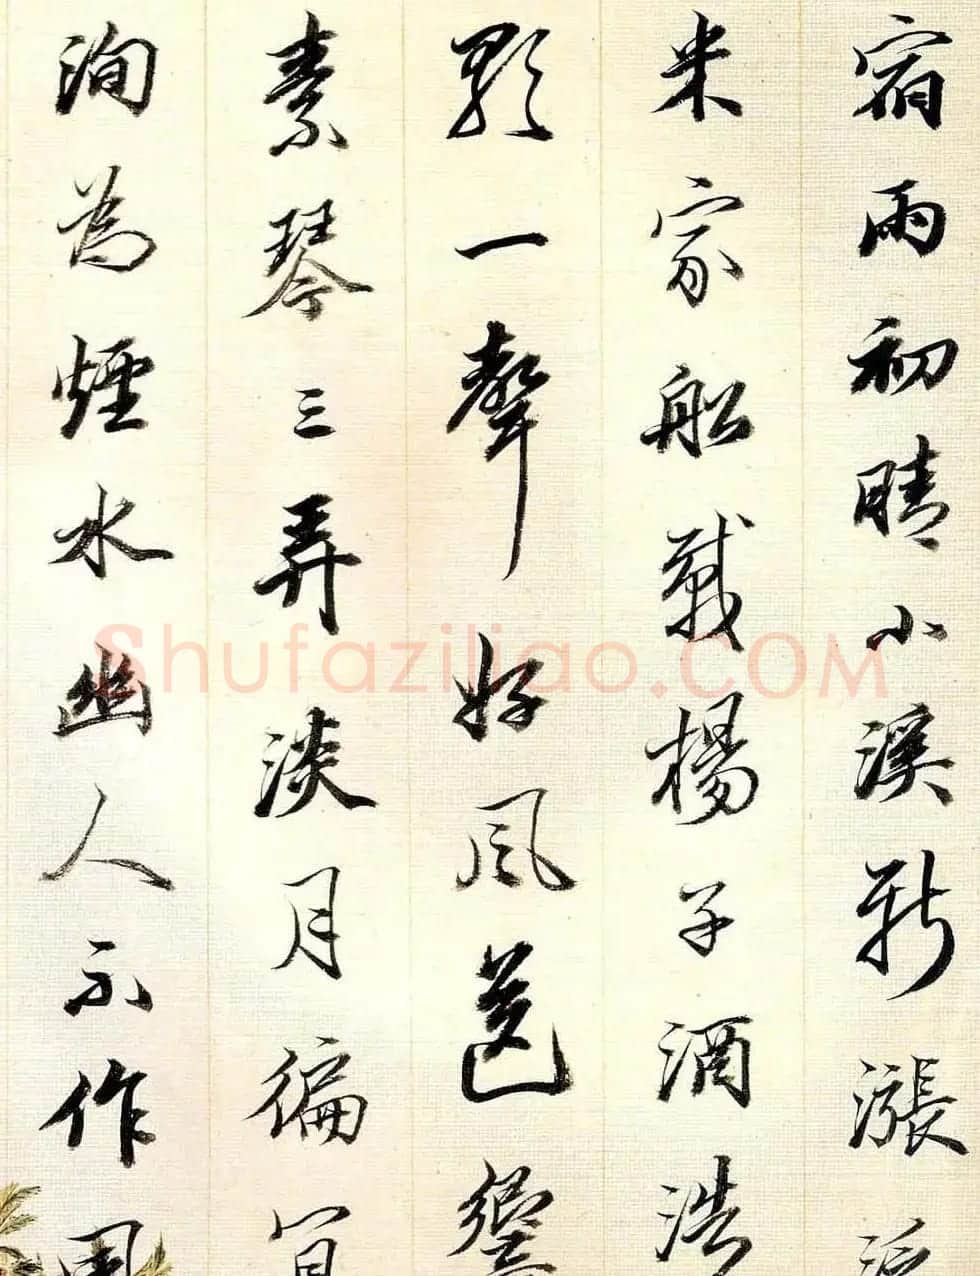 宿雨初晴小溪新漲泛
米家船載楊子酒浩
歌一聲好風響
素琴三弄淡月偏宜
洵為煙水幽人不作
Shufaziliao.COM